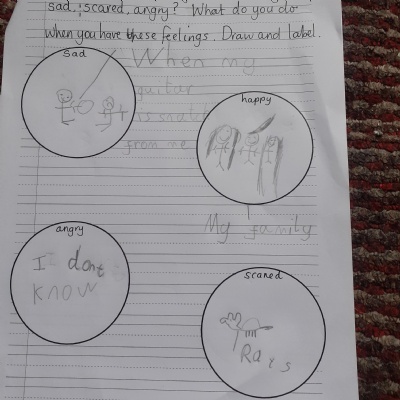 sad, scared, angry? What do you do
when you have these feelings. Draw and label.
sad
When my
guitar
is snatch
from me
happy
My family
angry
I dont
know
scared
Rats